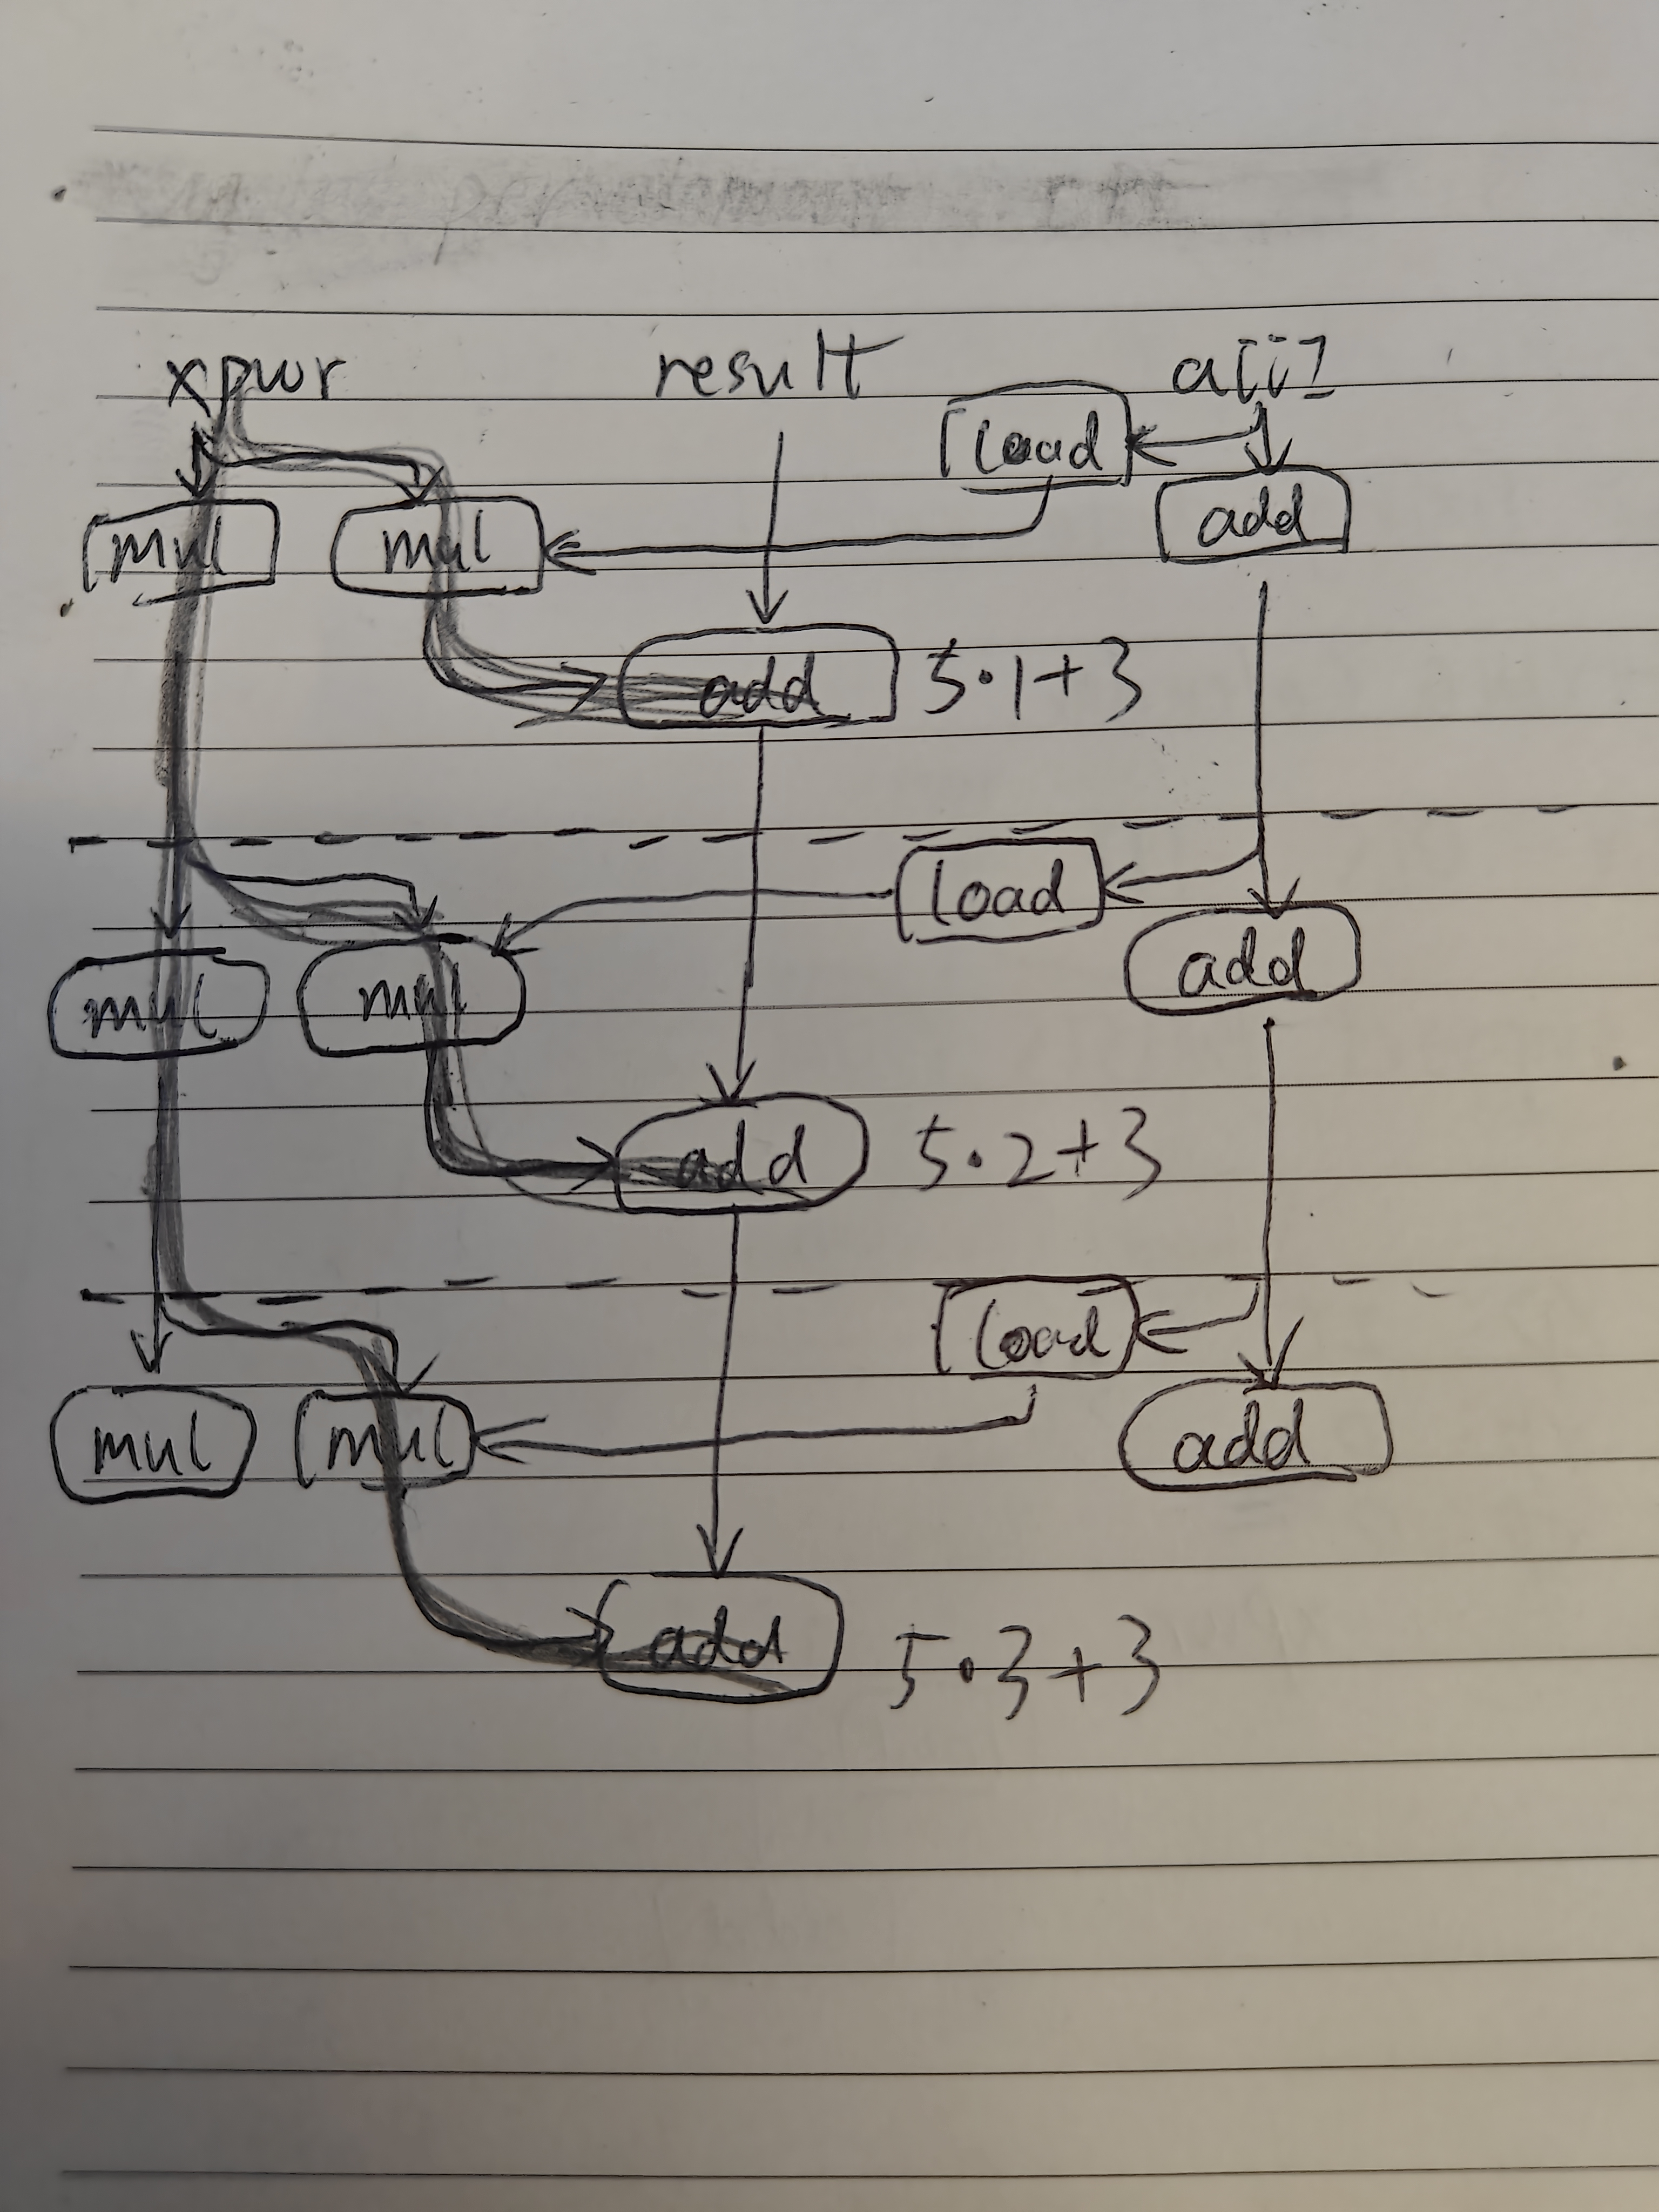 xpwr result a[i]
load
mul mul add
add 5·1+3
load
mul mul add
add 5·2+3
load
mul mul add
add 5·3+3